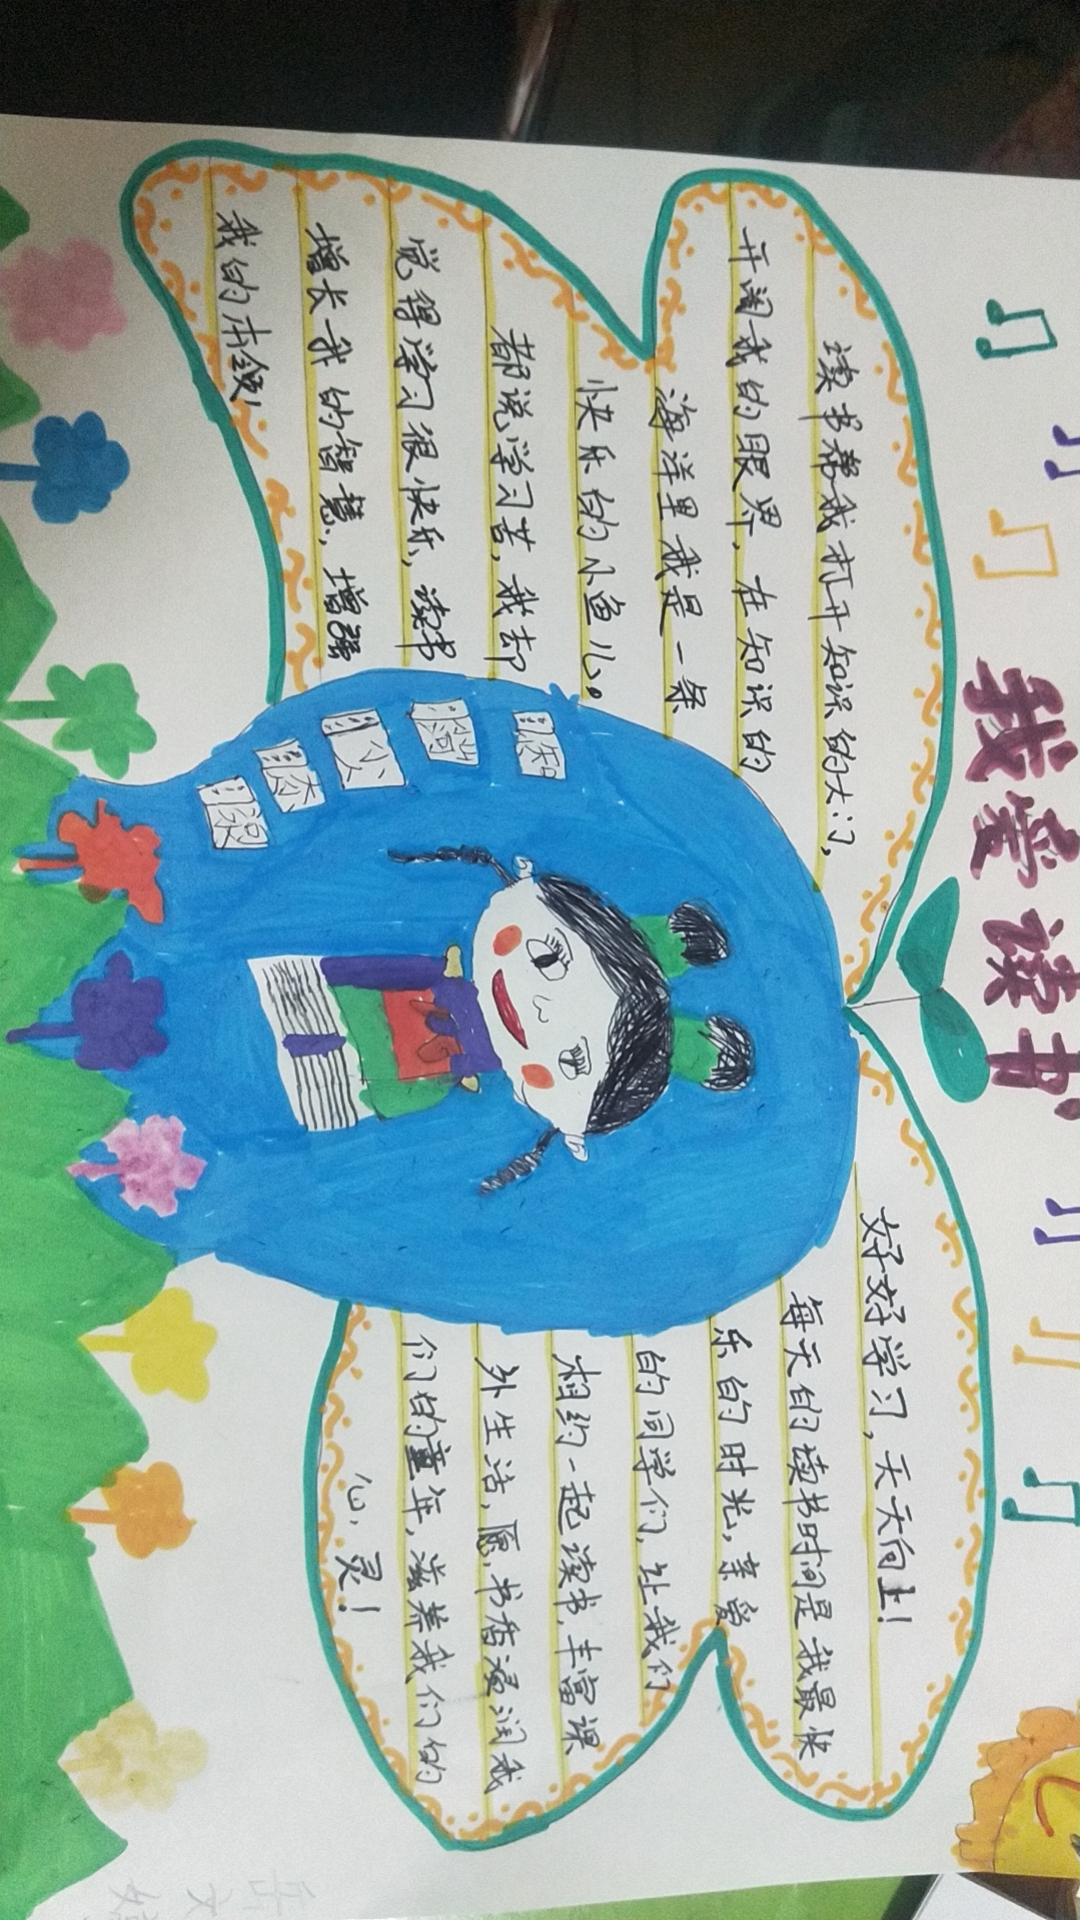 我爱读书
读书帮我打开知识的大门,
开阔我的眼界,在知识的
海洋里我是一条
快乐的小鱼儿。
都说学习苦,我却
觉得学习很快乐,读书
增长我的智慧,增强
我的本领!
知
海
父
识
好好学习,天天向上!
每天的读书时间是我最快
乐的时光,亲爱
的同学们,让我们
相约一起读书,丰富课
外生活,愿书香浸润我
们的童年,滋养我们的
心灵!